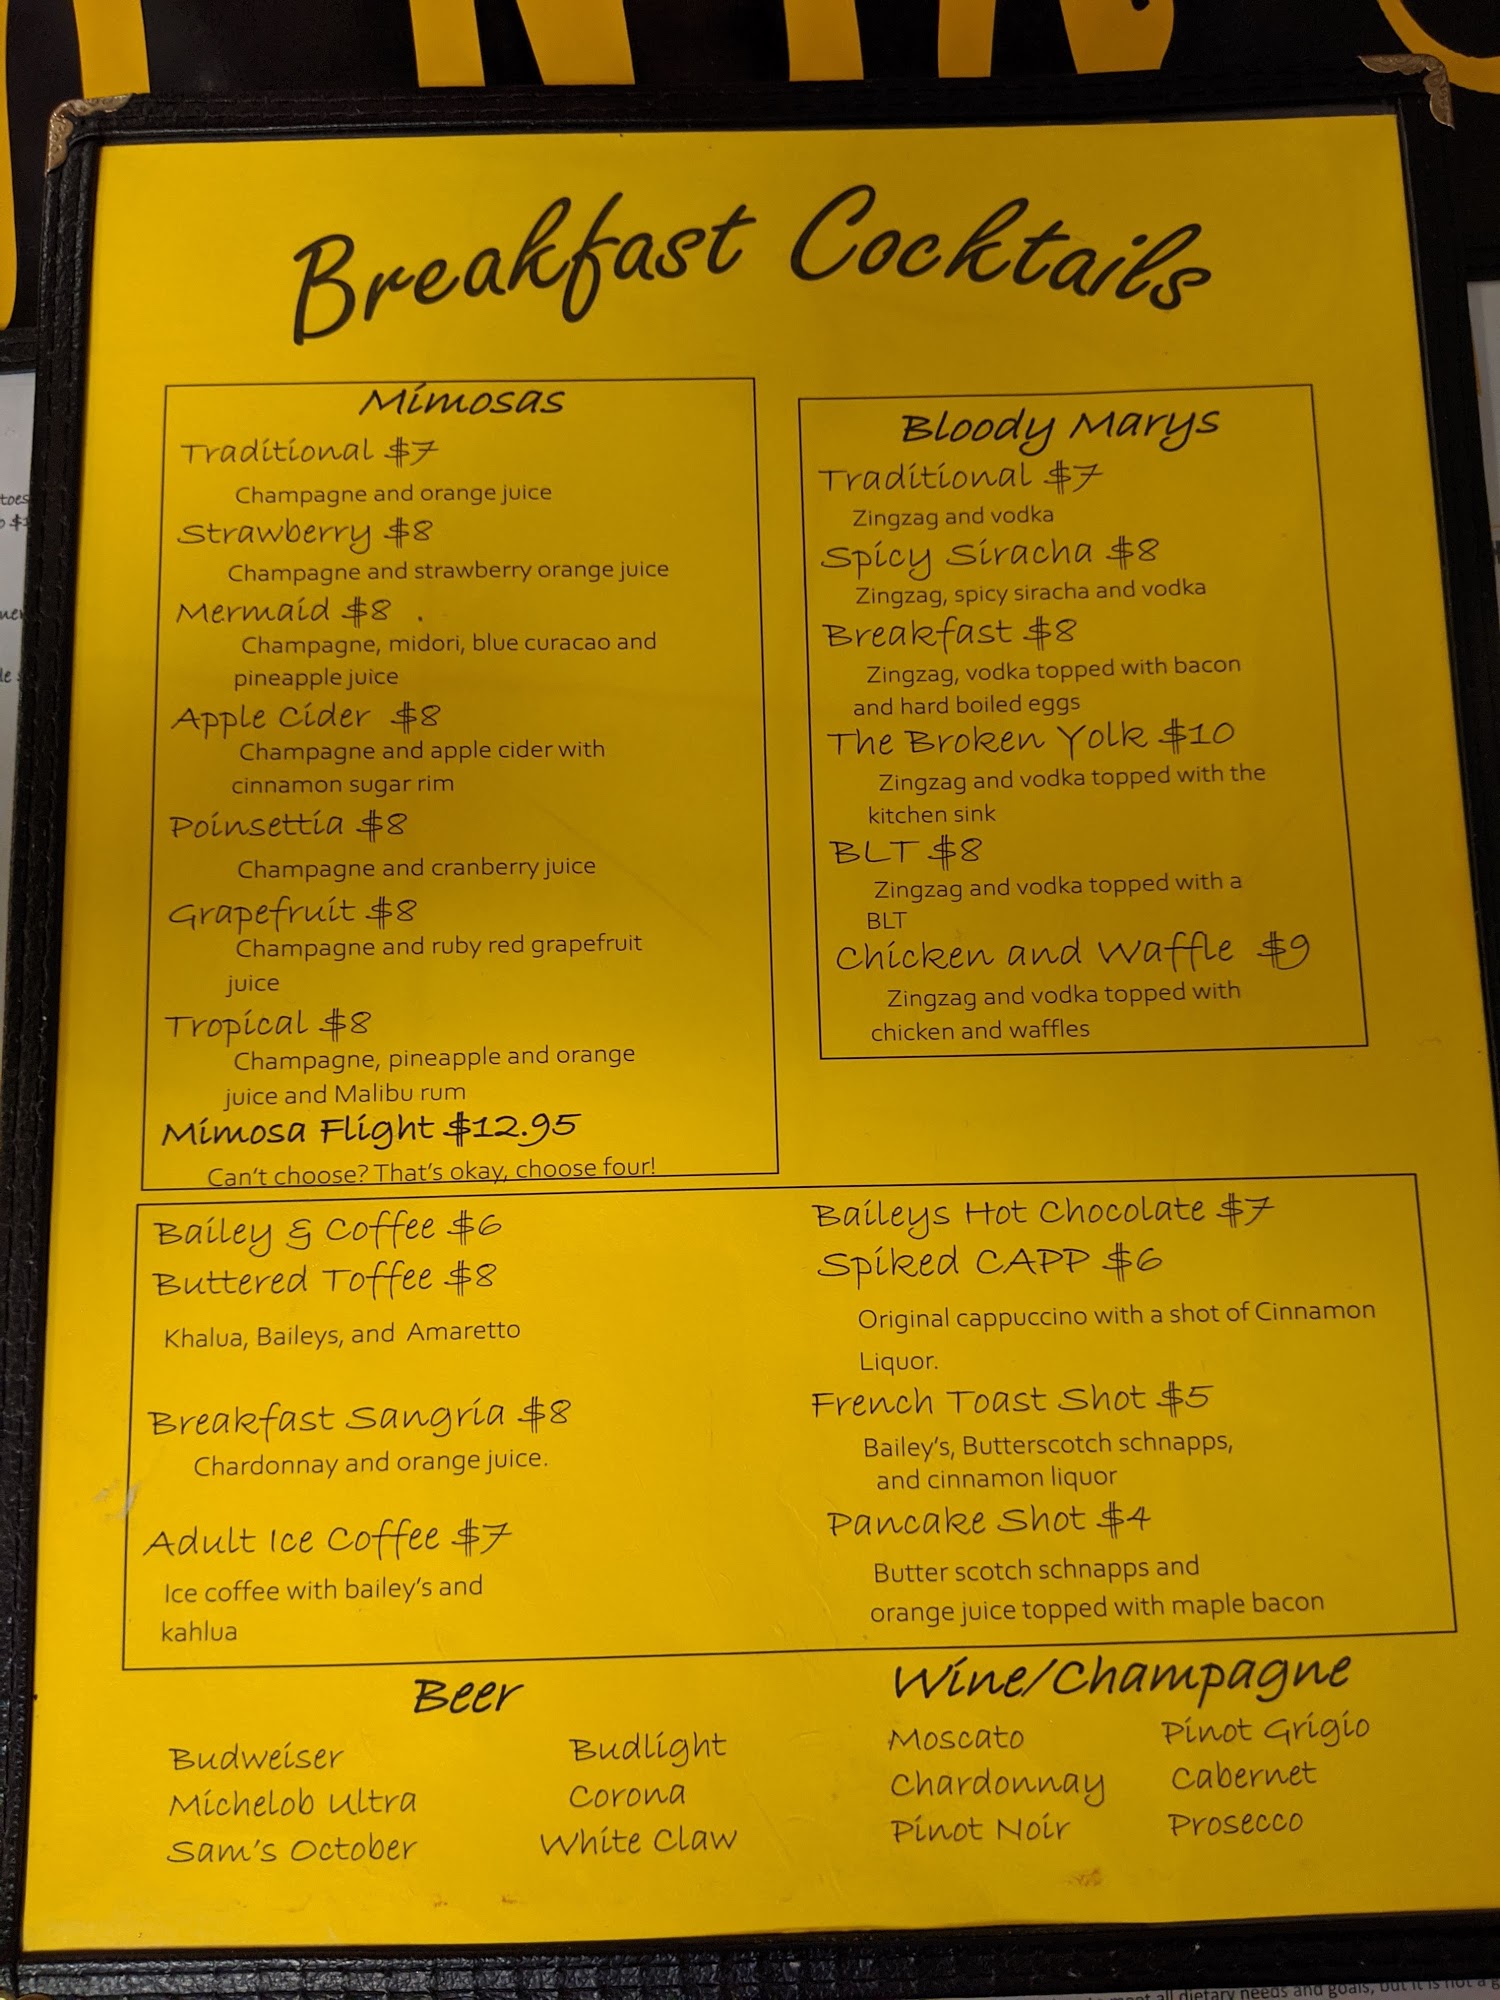 Breakfast Cocktails
Mimosas
Traditional $7
Champagne and orange juice
Strawberry $8
Champagne and strawberry orange juice
Mermaid $8
Champagne, midori, blue curacao and
pineapple juice
Apple Cider $8
Champagne and apple cider with
cinnamon sugar rim
Poinsettia $8
Champagne and cranberry juice
Grapefruit $8
Champagne and ruby red grapefruit
juice
Tropical $8
Champagne, pineapple and orange
juice and Malibu rum
Mimosa Flight $12.95
Can't choose? That's okay, choose four!
Bloody Marys
Traditional $7
Zingzag and vodka
Spicy Siracha $8
Zingzag, spicy siracha and vodka
Breakfast $8
Zingzag, vodka topped with bacon
and hard boiled eggs
The Broken Yolk $10
Zingzag and vodka topped with the
kitchen sink
BLT $8
Zingzag and vodka topped with a
BLT
Chicken and Waffle $9
Zingzag and vodka topped with
chicken and waffles
Bailey & Coffee $6
Buttered Toffee $8
Khalua, Baileys, and Amaretto
Breakfast Sangria $8
Chardonnay and orange juice.
Adult Ice Coffee $7
Ice coffee with bailey's and
kahlua
Baileys Hot Chocolate $7
Spiked CAPP $6
Original cappuccino with a shot of Cinnamon
Liquor.
French Toast Shot $5
Bailey's, Butterscotch schnapps,
and cinnamon liquor
Pancake Shot $4
Butter scotch schnapps and
orange juice topped with maple bacon
Beer
Budweiser
Michelob Ultra
Sam's October
Budlight
Corona
White Claw
Wine/Champagne
Moscato
Chardonnay
Pinot Noir
Pinot Grigio
Cabernet
Prosecco
all dietary needs and goals, but it is not a